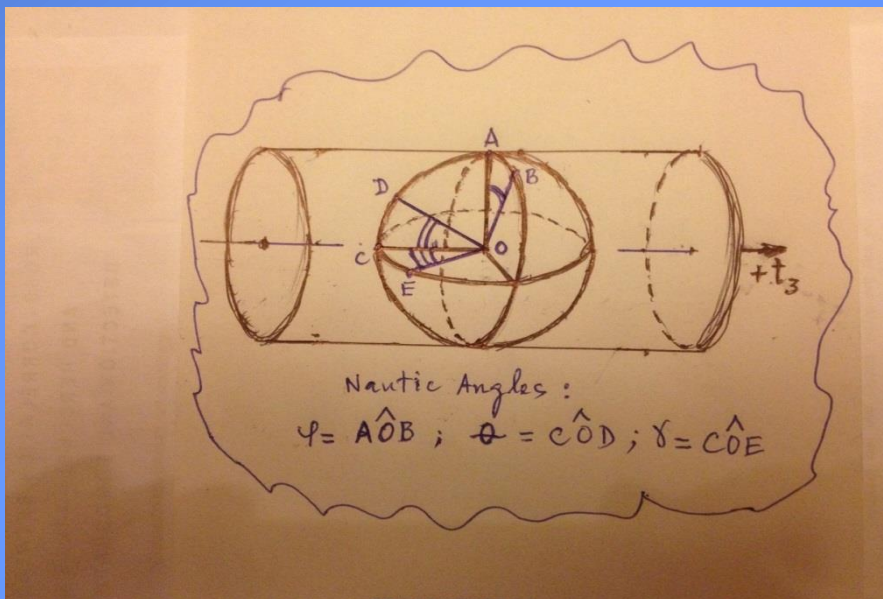 A
B
D
O
C
E
+t₃
Nautic Angles :
φ = AÔB ; θ = CÔD ; γ = CÔE